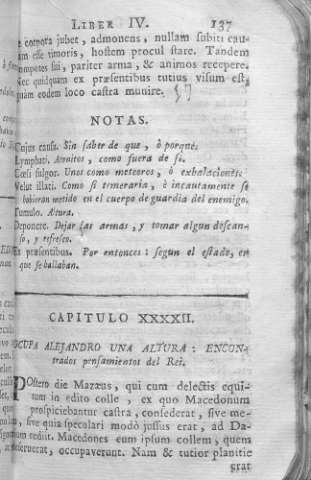 LIBER IV. 137
comota jubet, admonens, nullam subiti cau-
am esse timoris, hostem procul stare. Tandem
compotes sui, pariter arma, & animos recepere.
Nec quidquam ex præsentibus tutius visum est,
quàm eodem loco castra munire. 57
NOTAS.
Cujus causa. Sin saber de que, ò porqué.
Lymphati. Atonitos, como fuera de sí.
Cœli fulgor. Unos como meteoros, ò exhalaciones.
Velut illati. Como si temeraria, è incautamente se
hubieran metido en el cuerpo de guardia del enemigo.
Tumulo. Altura.
Deponere. Dejar las armas, y tomar algun descan-
so, y refresco.
Ex præsentibus. Por entonces: segun el estado, en
que se hallaban.
CAPITULO XXXXII.
OCUPA ALEJANDRO UNA ALTURA: ENCON-
trados pensamientos del Rei.
POstero die Mazæus, qui cum delectis equi-
tum in edito colle, ex quo Macedonum
prospiciebantur castra, consederat, sive me-
tu, sive quia speculari modò jussus erat, ad Da-
rium rediit. Macedones eum ipsum collem, quem
deseruerat, occupaverunt. Nam & tutior planitie
erat